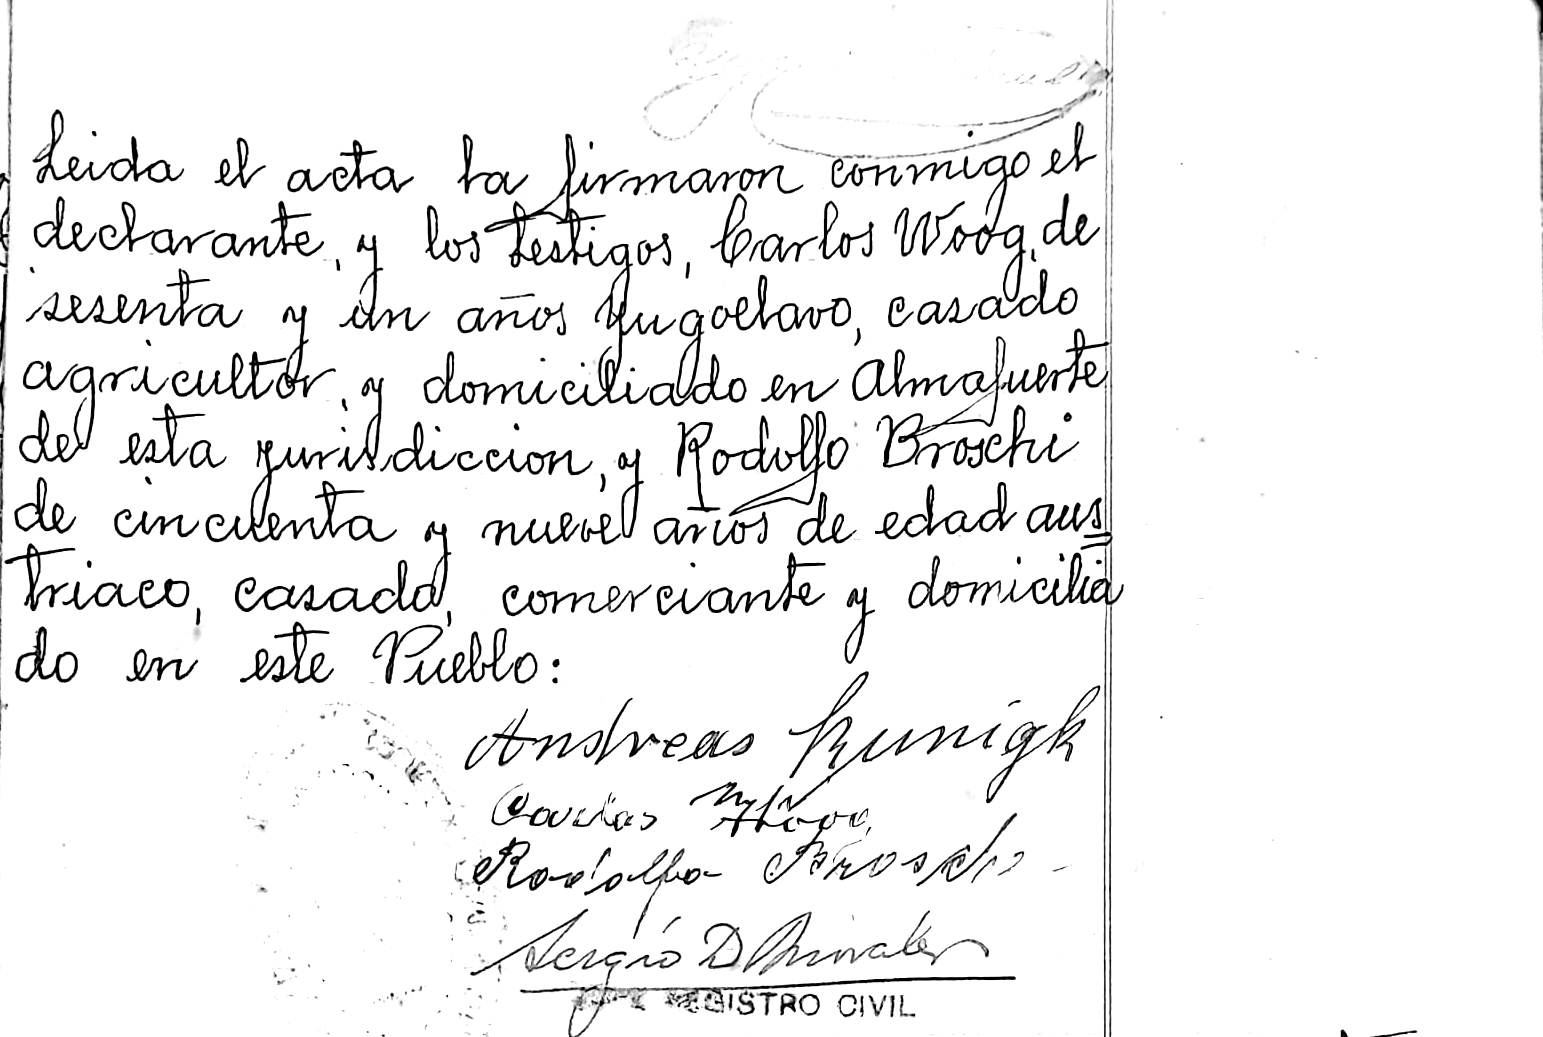 Leida el acta la firmaron conmigo el
declarante, y los testigos, Carlos Woog, de
sesenta y un años Yugoelavo, casado
agricultor, y domiciliado en Almafuerte
de esta jurisdiccion, y Rodolfo Broschi
de cincuenta y nueve años de edad aus=
triaco, casado, comerciante y domicilia
do en este Pueblo:
Andreas Kunigk
Carlos Woog
Rodolfo Brosch
Sergio D
REGISTRO CIVIL